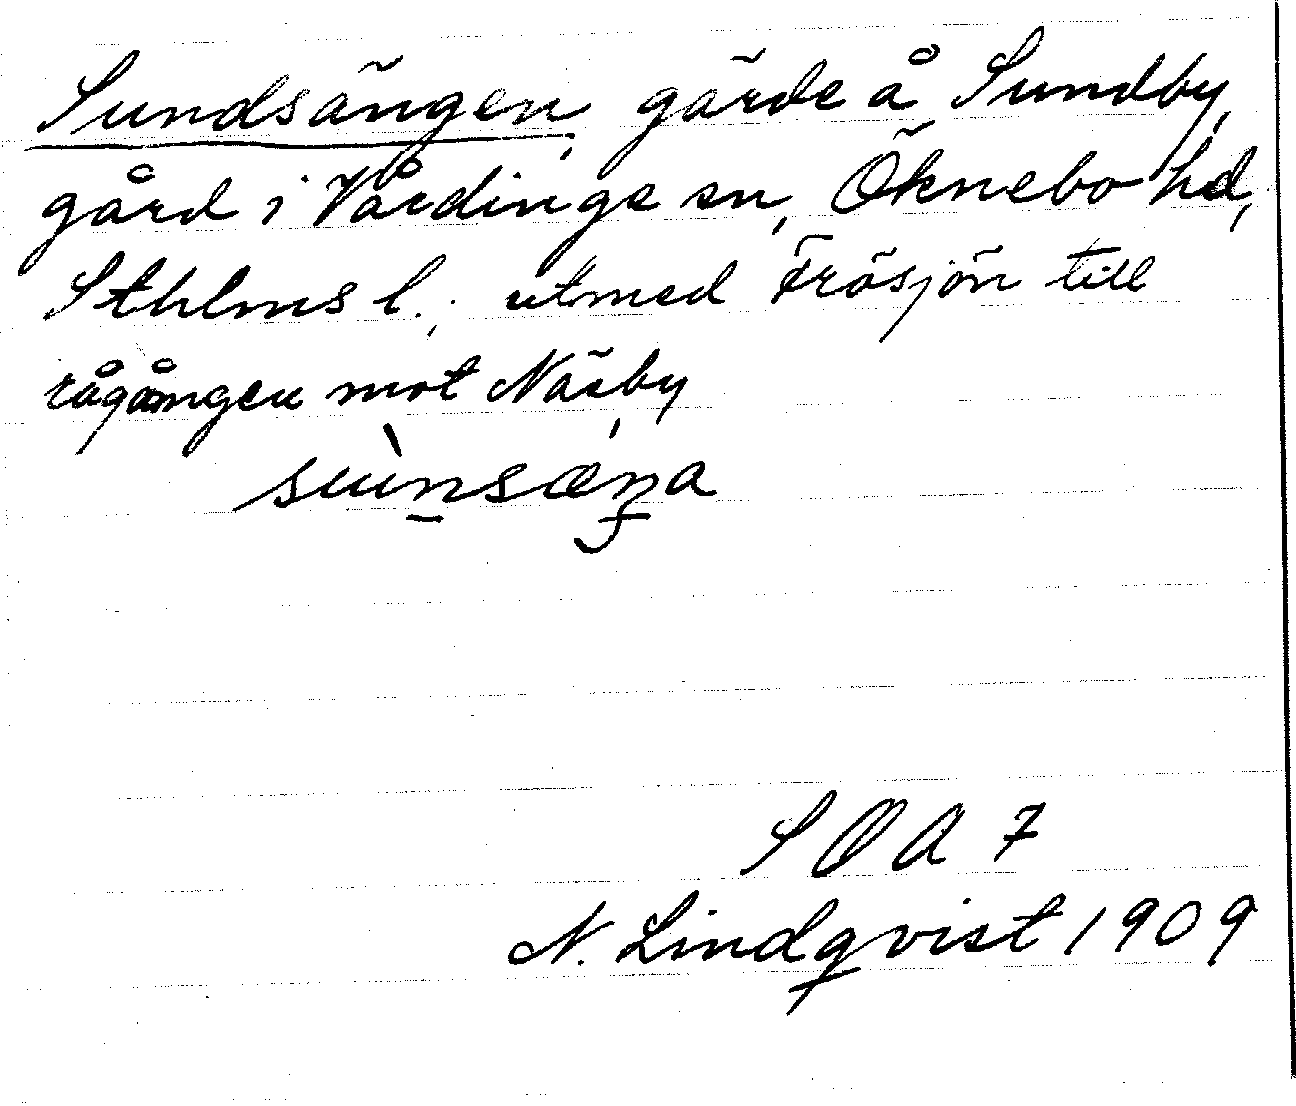 Sundsängen, gärde å Sundby
gård i Vårdinge sn, Öknebo hd,
Sthlms l.; utmed Frösjön till
rågången mot Näsby
SOA 7
N. Lindqvist 1909